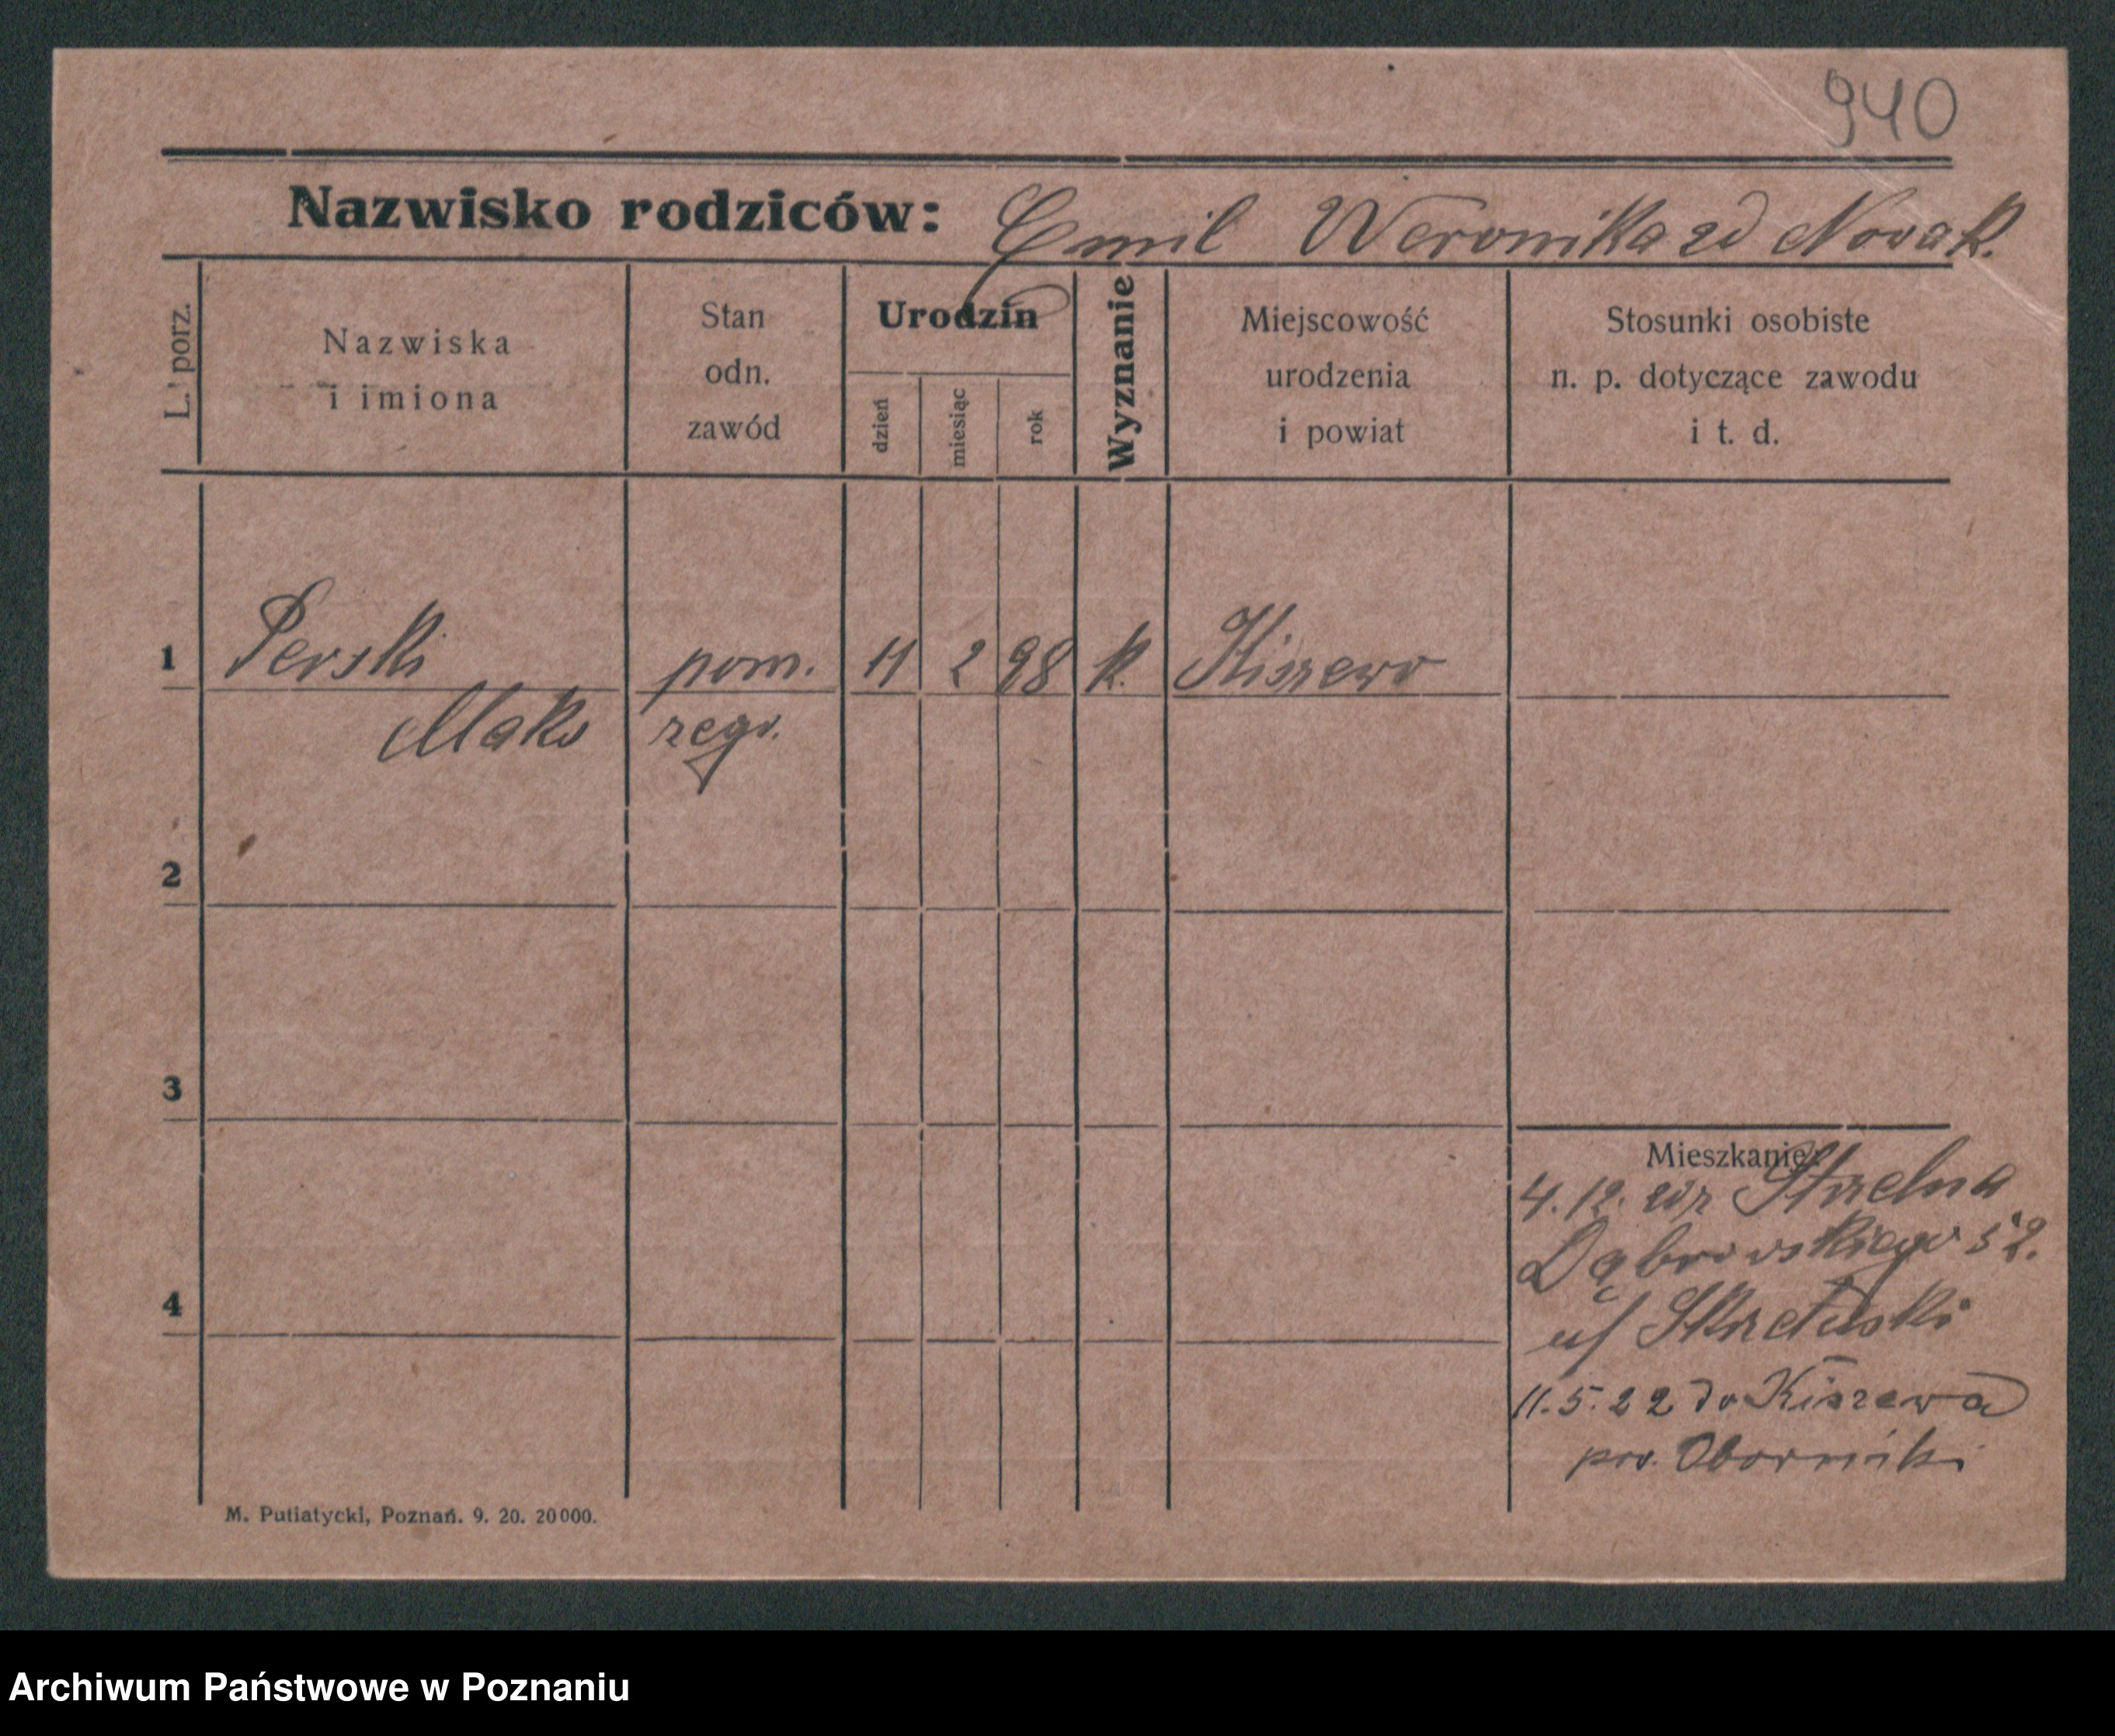 940
Nazwisko rodziców: Emil Weronika zd Novak.
L. porz.
Nazwiska
i imiona
Stan
odn.
zawód
Urodzin
dzień
miesiąc
rok
Wyznanie
Miejscowość
urodzenia
i powiat
Stosunki osobiste
n. p. dotyczące zawodu
i t. d.
1 Perski pom. 11 2 98 k. Kiszewo
Maks zegr.
2
3
Mieszkanie:
4.12. Strzelna
Dąbrowskiego 52.
u/ Skrzetuski
4
11.5.22 do Kiszewa
pow. Oborniki
M. Putiatycki, Poznań. 9. 20. 20000.
Archiwum Państwowe w Poznaniu